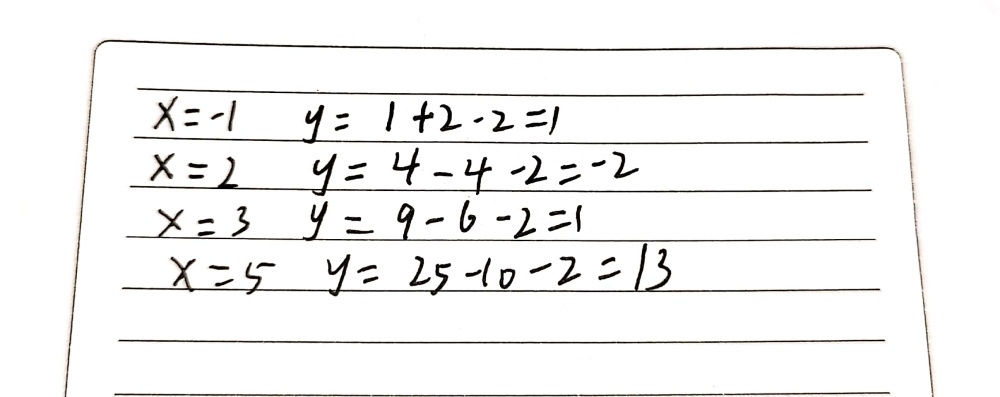 x=-1 y= 1+2-2=1
x=2 y= 4-4-2=-2
x=3 y= 9-6-2=1
x=5 y= 25-10-2=13